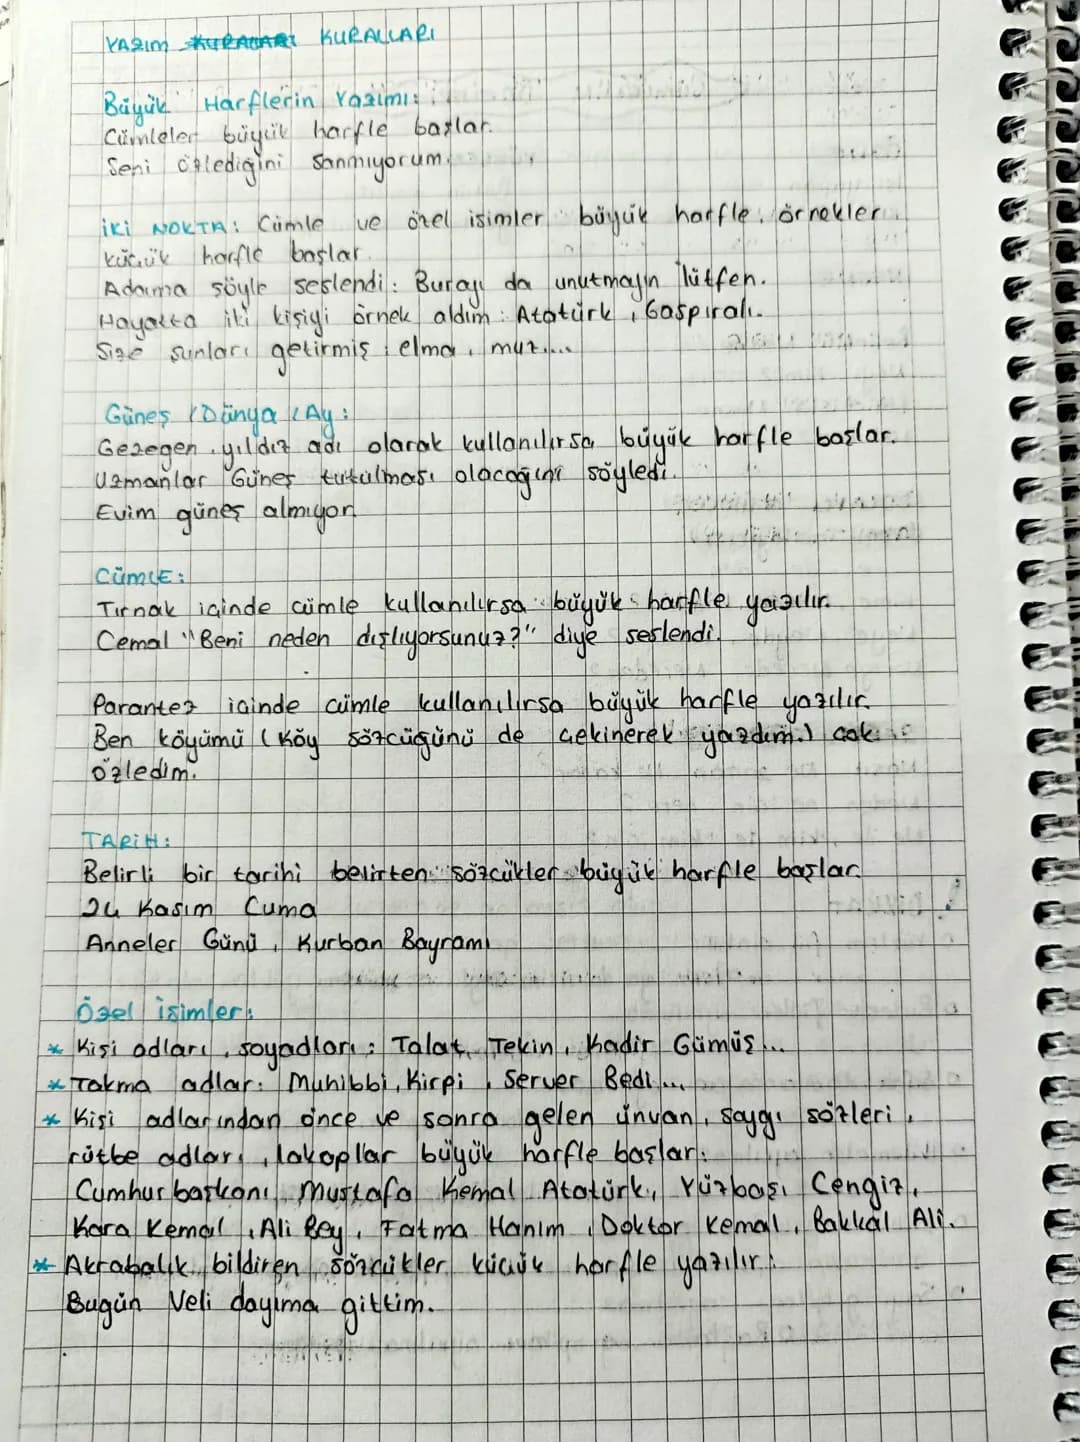 YAZIM KURALLARI
Büyük Harflerin Yazımı:
Cümleler büyük harfle başlar.
Seni özlediğini sanmıyorum.
İKİ NOKTA: Cümle ve özel isimler büyük harfle, örnekler
küçük harfle başlar.
Adama şöyle seslendi: Burayı da unutmayın lütfen.
Hayatta iki kişiyi örnek aldım: Atatürk, Gaspıralı.
Size şunları getirmiş: elma, muz....
Güneş / Dünya / Ay:
Gezegen, yıldız adı olarak kullanılırsa büyük harfle başlar.
Uzmanlar Güneş tutulması olacağını söyledi.
Evim güneş almıyor.
CÜMLE:
Tırnak içinde cümle kullanılırsa büyük harfle yazılır.
Cemal "Beni neden dışlıyorsunuz?" diye seslendi.
Parantez içinde cümle kullanılırsa büyük harfle yazılır.
Ben köyümü (Köy sözcüğünü de çekinerek yazdım.) çok
özledim.
TARİH:
Belirli bir tarihi belirten sözcükler büyük harfle başlar.
24 Kasım Cuma
Anneler Günü, Kurban Bayramı
Özel isimler:
* Kişi adları, soyadları: Talat Tekin, Kadir Gümüş...
* Takma adlar: Muhibbi, Kirpi, Server Bedi...
* Kişi adlarından önce ve sonra gelen ünvan, saygı sözleri,
rütbe adları, lakaplar büyük harfle başlar:
Cumhurbaşkanı Mustafa Kemal Atatürk, Yüzbaşı Cengiz,
Kara Kemal, Ali Bey, Fatma Hanım, Doktor Kemal, Bakkal Ali.
* Akrabalık bildiren sözcükler küçük harfle yazılır:
Bugün Veli dayıma gittim.